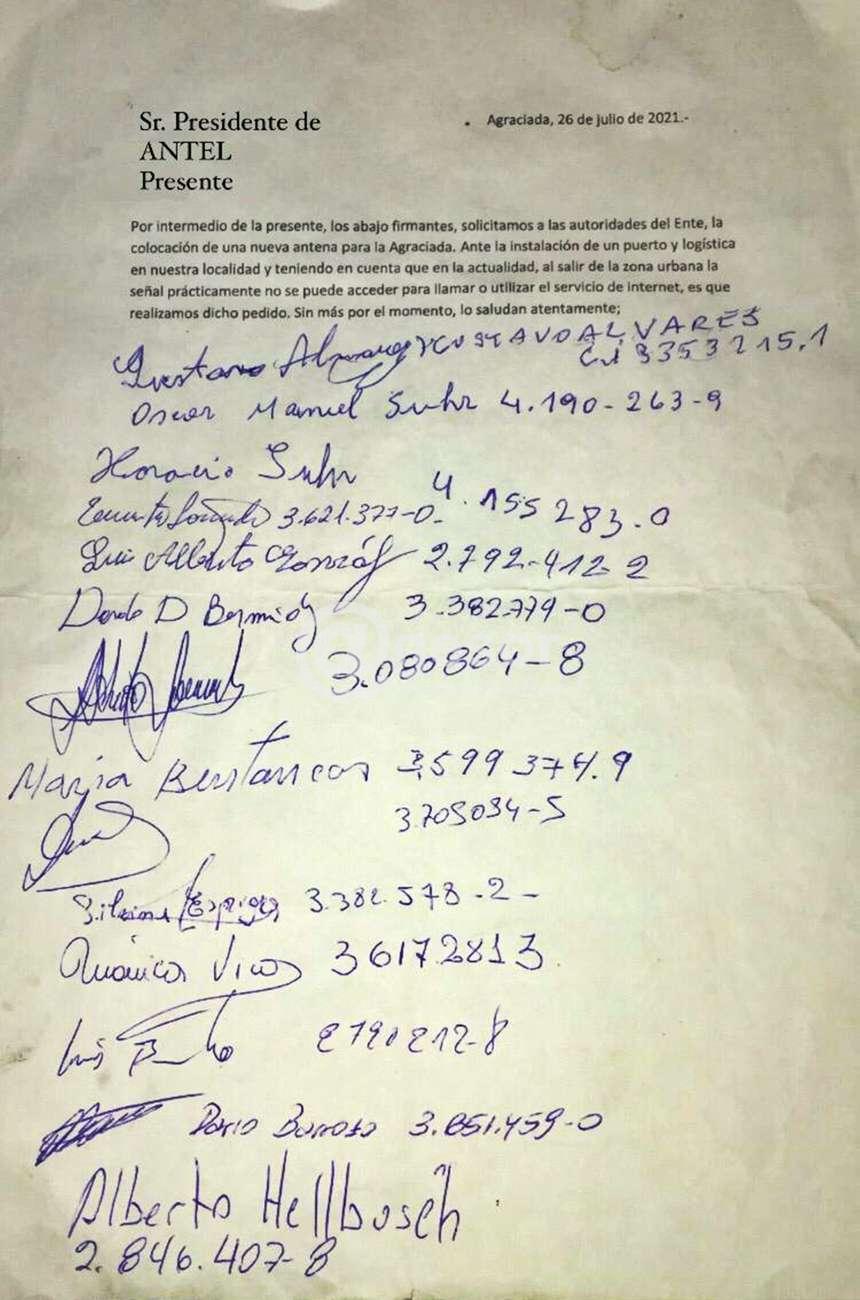 Sr. Presidente de
ANTEL
Presente
Agraciada, 26 de julio de 2021.-
Por intermedio de la presente, los abajo firmantes, solicitamos a las autoridades del Ente, la
colocación de una nueva antena para la Agraciada. Ante la instalación de un puerto y logística
en nuestra localidad y teniendo en cuenta que en la actualidad, al salir de la zona urbana la
señal prácticamente no se puede acceder para llamar o utilizar el servicio de internet, es que
realizamos dicho pedido. Sin más por el momento, lo saludan atentamente;
Gustavo Alvarez GUSTAVO ALVARES
C.I 3353215.1
Oscar Manuel Suhr 4.190-263-9
Horacio Suhr 4.155283.0
3.621.377-0.
Luis Alberto González 2.792-412-2
D Bermúdez 3.382.779-0
Alberto 3.080864-8
María Bentancor 3,599374.9
3.705034-5
Silvina 3.382.578-2-
Mónica Vico 36172813
Luis 2790212-8
Dario Barroso 3.851.459-0
Alberto Hellbusch
2.846.407-8